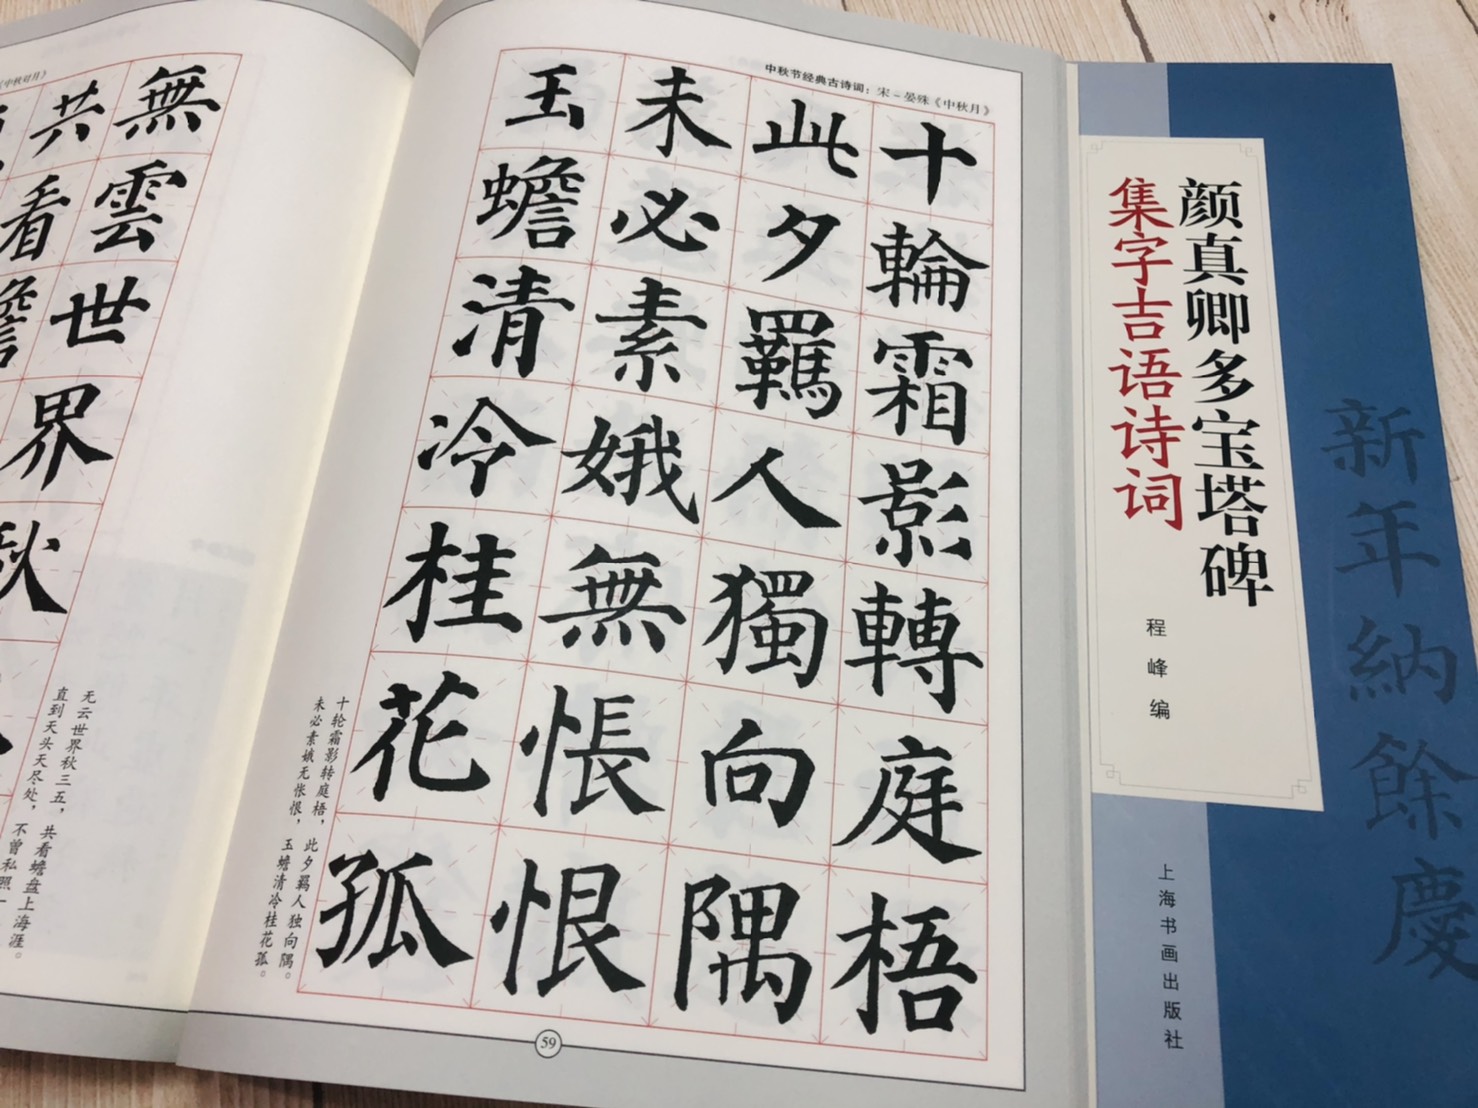 中秋节经典古诗词：宋－晏殊《中秋月》
十輪霜影轉庭梧
此夕羈人獨向隅
未必素娥無悵恨
玉蟾清冷桂花孤
十轮霜影转庭梧，此夕羁人独向隅。
未必素娥无怅恨，玉蟾清冷桂花孤。
59
《中秋对月》
無雲世界
共看蟾
秋
无云世界秋三五，共看蟾盘上海涯。
直到天头天尽处，不曾私照一
颜真卿多宝塔碑
集字吉语诗词
程峰编
上海书画出版社
新年納餘慶